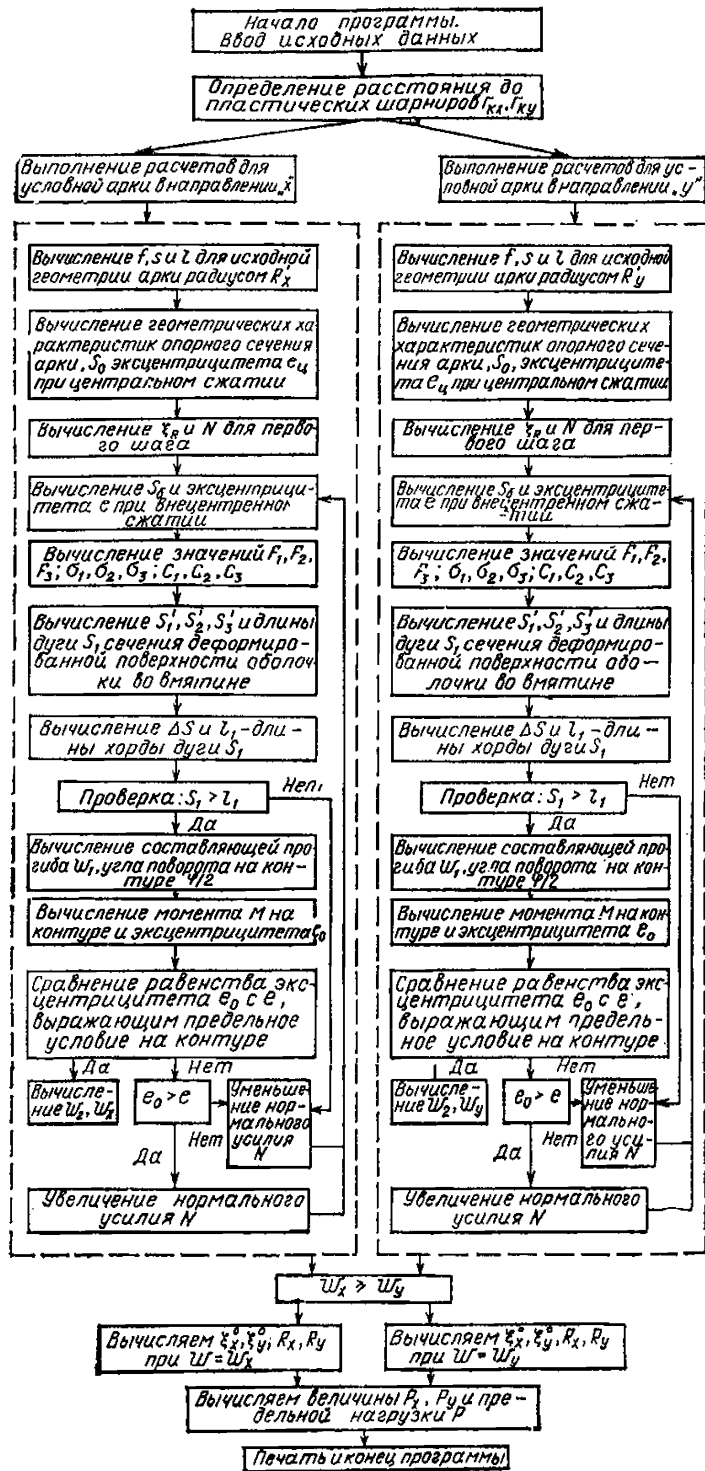 Начало программы.
Ввод исходных данных
Определение расстояния до
пластических шарниров rкx, rкy
Выполнение расчетов для
условной арки в направлении „x"
Вычисление f, s и l для исходной
геометрии арки радиусом R'x
Вычисление геометрических ха-
рактеристик опорного сечения
арки, S₀ эксцентрицитета eц
при центральном сжатии
Вычисление ξR и N для перво-
го шага
Вычисление Sб и эксцентрици-
тета e при внецентренном
сжатии
Вычисление значений F₁, F₂,
F₃; σ₁, σ₂, σ₃; C₁, C₂, C₃
Вычисление S₁', S₂', S₃' и длины
дуги S₁ сечения деформиро-
ванной поверхности оболоч-
ки во вмятине
Вычисление ΔS и l₁-дли-
ны хорды дуги S₁
Проверка: S₁ > l₁
Нет
Да
Вычисление составляющей про-
гиба W₁, угла поворота на кон-
туре φ/2
Вычисление момента M на
контуре и эксцентрицитета e₀
Сравнение равенства экс-
центрицитета e₀ с e,
выражающим предельное
условие на контуре
Да
Нет
Вычисле-
ние W₂, Wx
e₀ > e
Уменьше-
ние нор-
мального
усилия
N
Нет
Да
Увеличение нормального
усилия N
Выполнение расчетов для ус-
ловной арки в направлении „y"
Вычисление f, s и l для исходной
геометрии арки радиусом R'y
Вычисление геометрических
характеристик опорного сече-
ния арки, S₀, эксцентриците-
та eц при центральном сжатии
Вычисление ξR и N для пер-
вого шага
Вычисление Sб и эксцентриците-
та e при внецентренном сжа-
тии
Вычисление значений F₁, F₂,
F₃; σ₁, σ₂, σ₃; C₁, C₂, C₃
Вычисление S₁', S₂', S₃' и длины
дуги S₁ сечения деформиро-
ванной поверхности обо-
лочки во вмятине
Вычисление ΔS и l₁-дли-
ны хорды дуги S₁
Проверка: S₁ > l₁
Нет
Да
Вычисление составляющей про-
гиба W₁, угла поворота на кон-
туре φ/2
Вычисление момента M на кон-
туре и эксцентрицитета e₀
Сравнение равенства экс-
центрицитета e₀ с e,
выражающим предель-
ное условие на контуре
Да
Нет
Вычисле-
ние W₂, Wy
e₀ > e
Уменьше-
ние норма-
льного уси-
лия N
Нет
Да
Увеличение нормального
усилия N
Wx ≥ Wy
Вычисляем ξx⁰, ξy⁰, Rx, Ry
при W = Wx
Вычисляем ξx⁰, ξy⁰, Rx, Ry
при W = Wy
Вычисляем величины Px, Py и пре-
дельной нагрузки P
Печать и конец программы